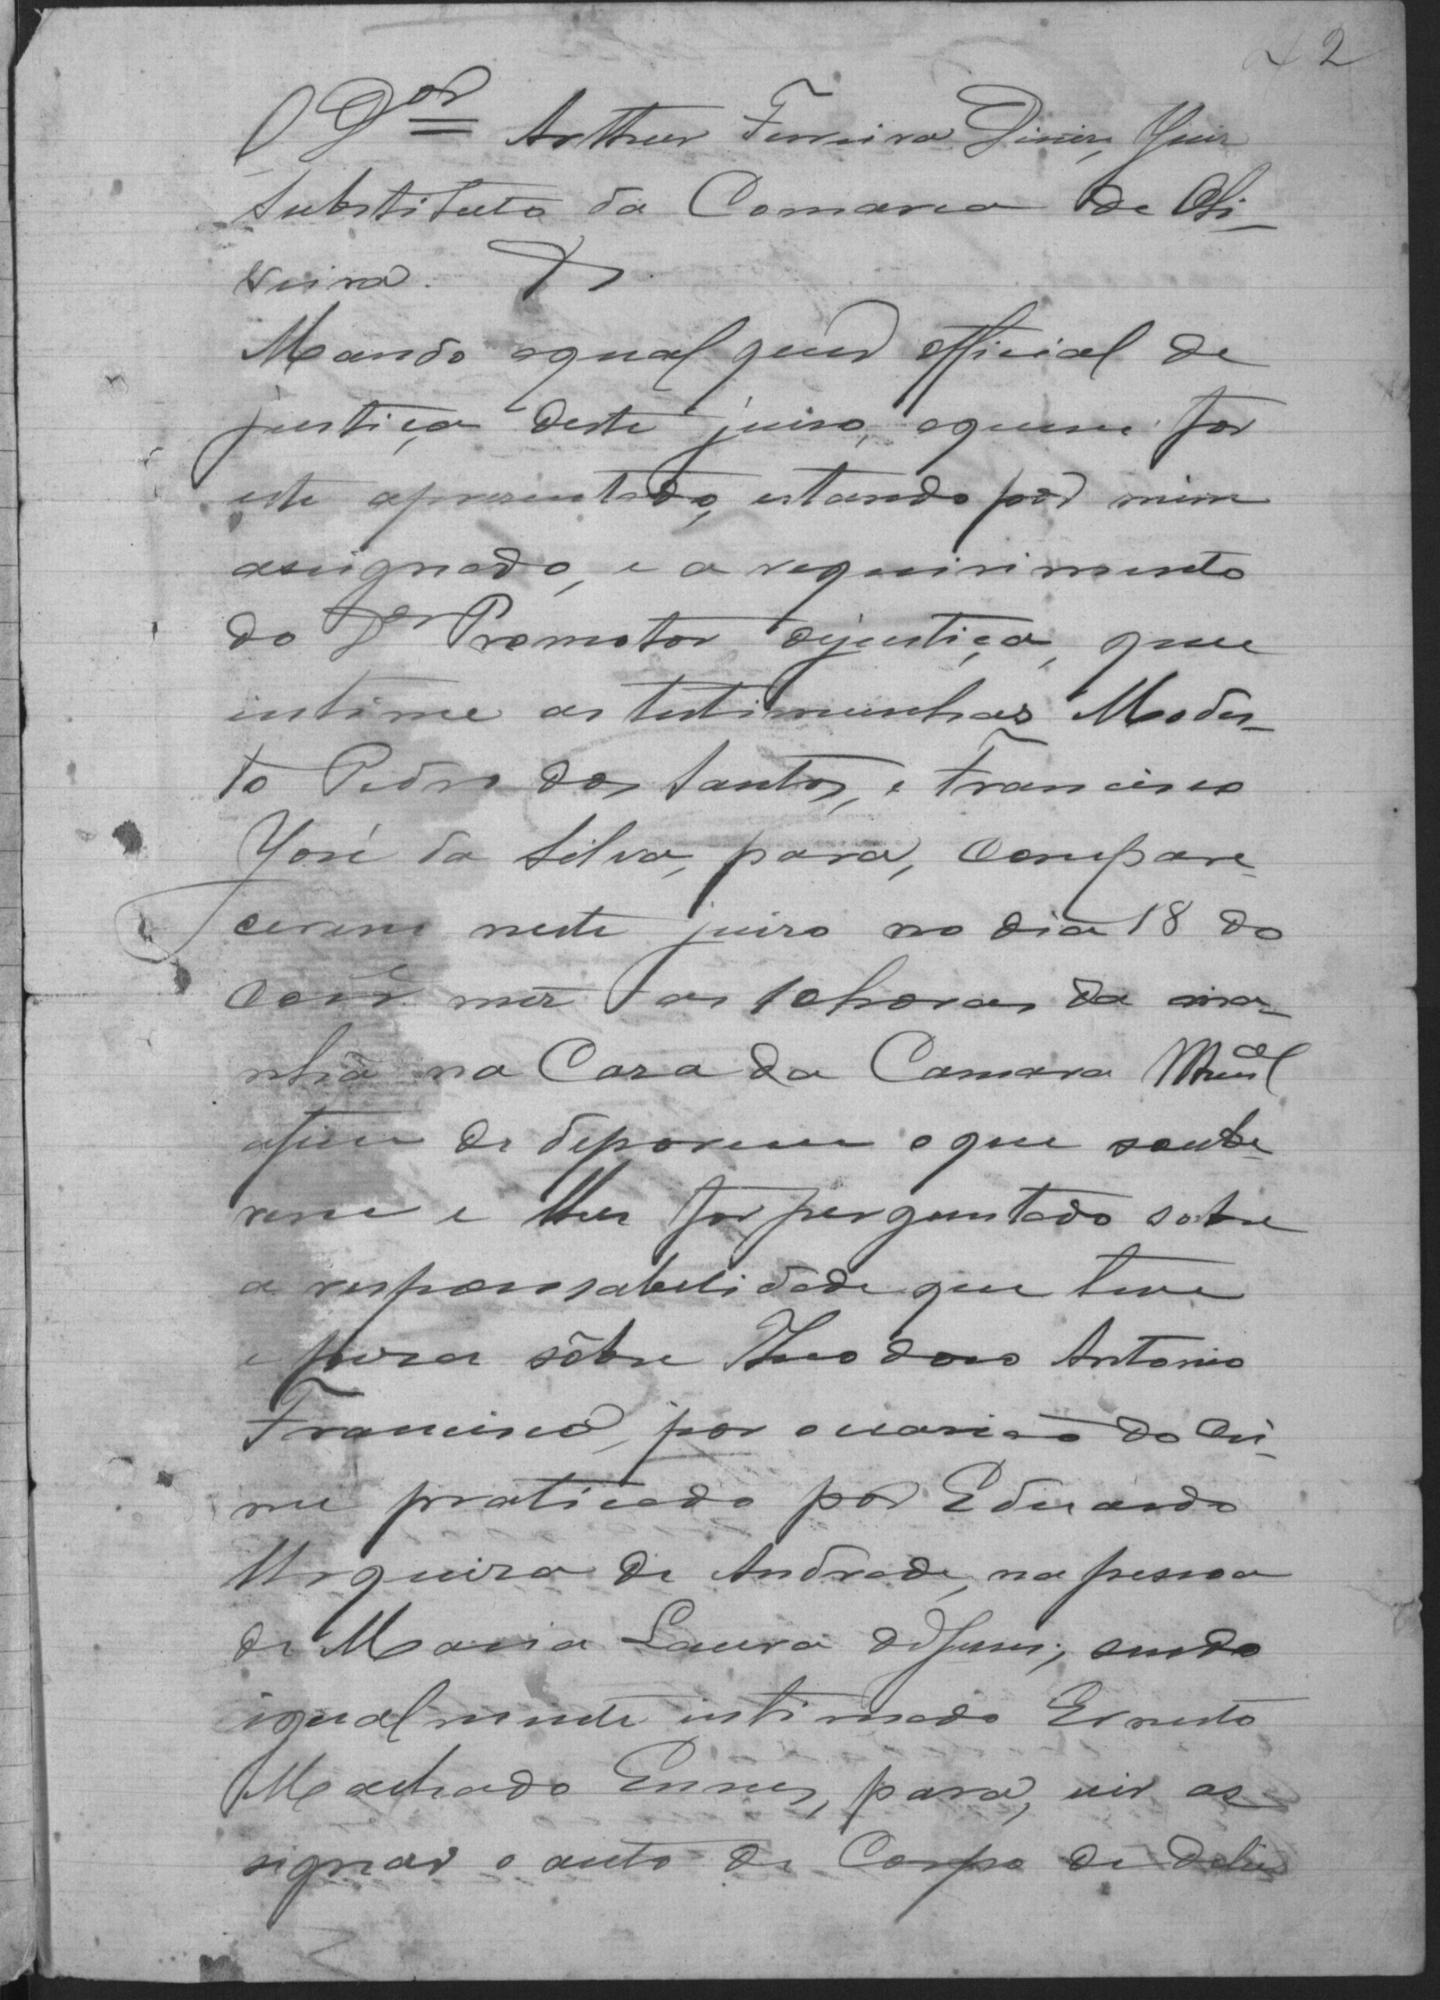 42
O Dor Arthur Ferreira Diniz, Juiz
Substituto da Comarca de Oli-
veira.
Mando aqual quer official de
justiça deste juiso, aquem for
este apresentado, estando por mim
assignado, e a requirimento
do Dor Promotor dejustiça, que
intime as testimunhas Modes-
to Pedro dos Santos, e Francisco
José da Silva, para, compare-
cerem neste juizo no dia 18 do
corre mez as 10horas da ma-
nhã na Caza da Camara Mual
afim de deporem oque soube-
rem e lhes for perguntado sobre
a responsabelidade que teve
e peza sôbre Theodoro Antonio
Francisco, por ocazião do cri-
me praticado por Eduardo
Nogueira de Andrade, na pessoa
de Maria Laura de Jesus; sendo
igualmente intimado Ernesto
Machado Ennes, para, vir as
signar o auto de Corpo de delic